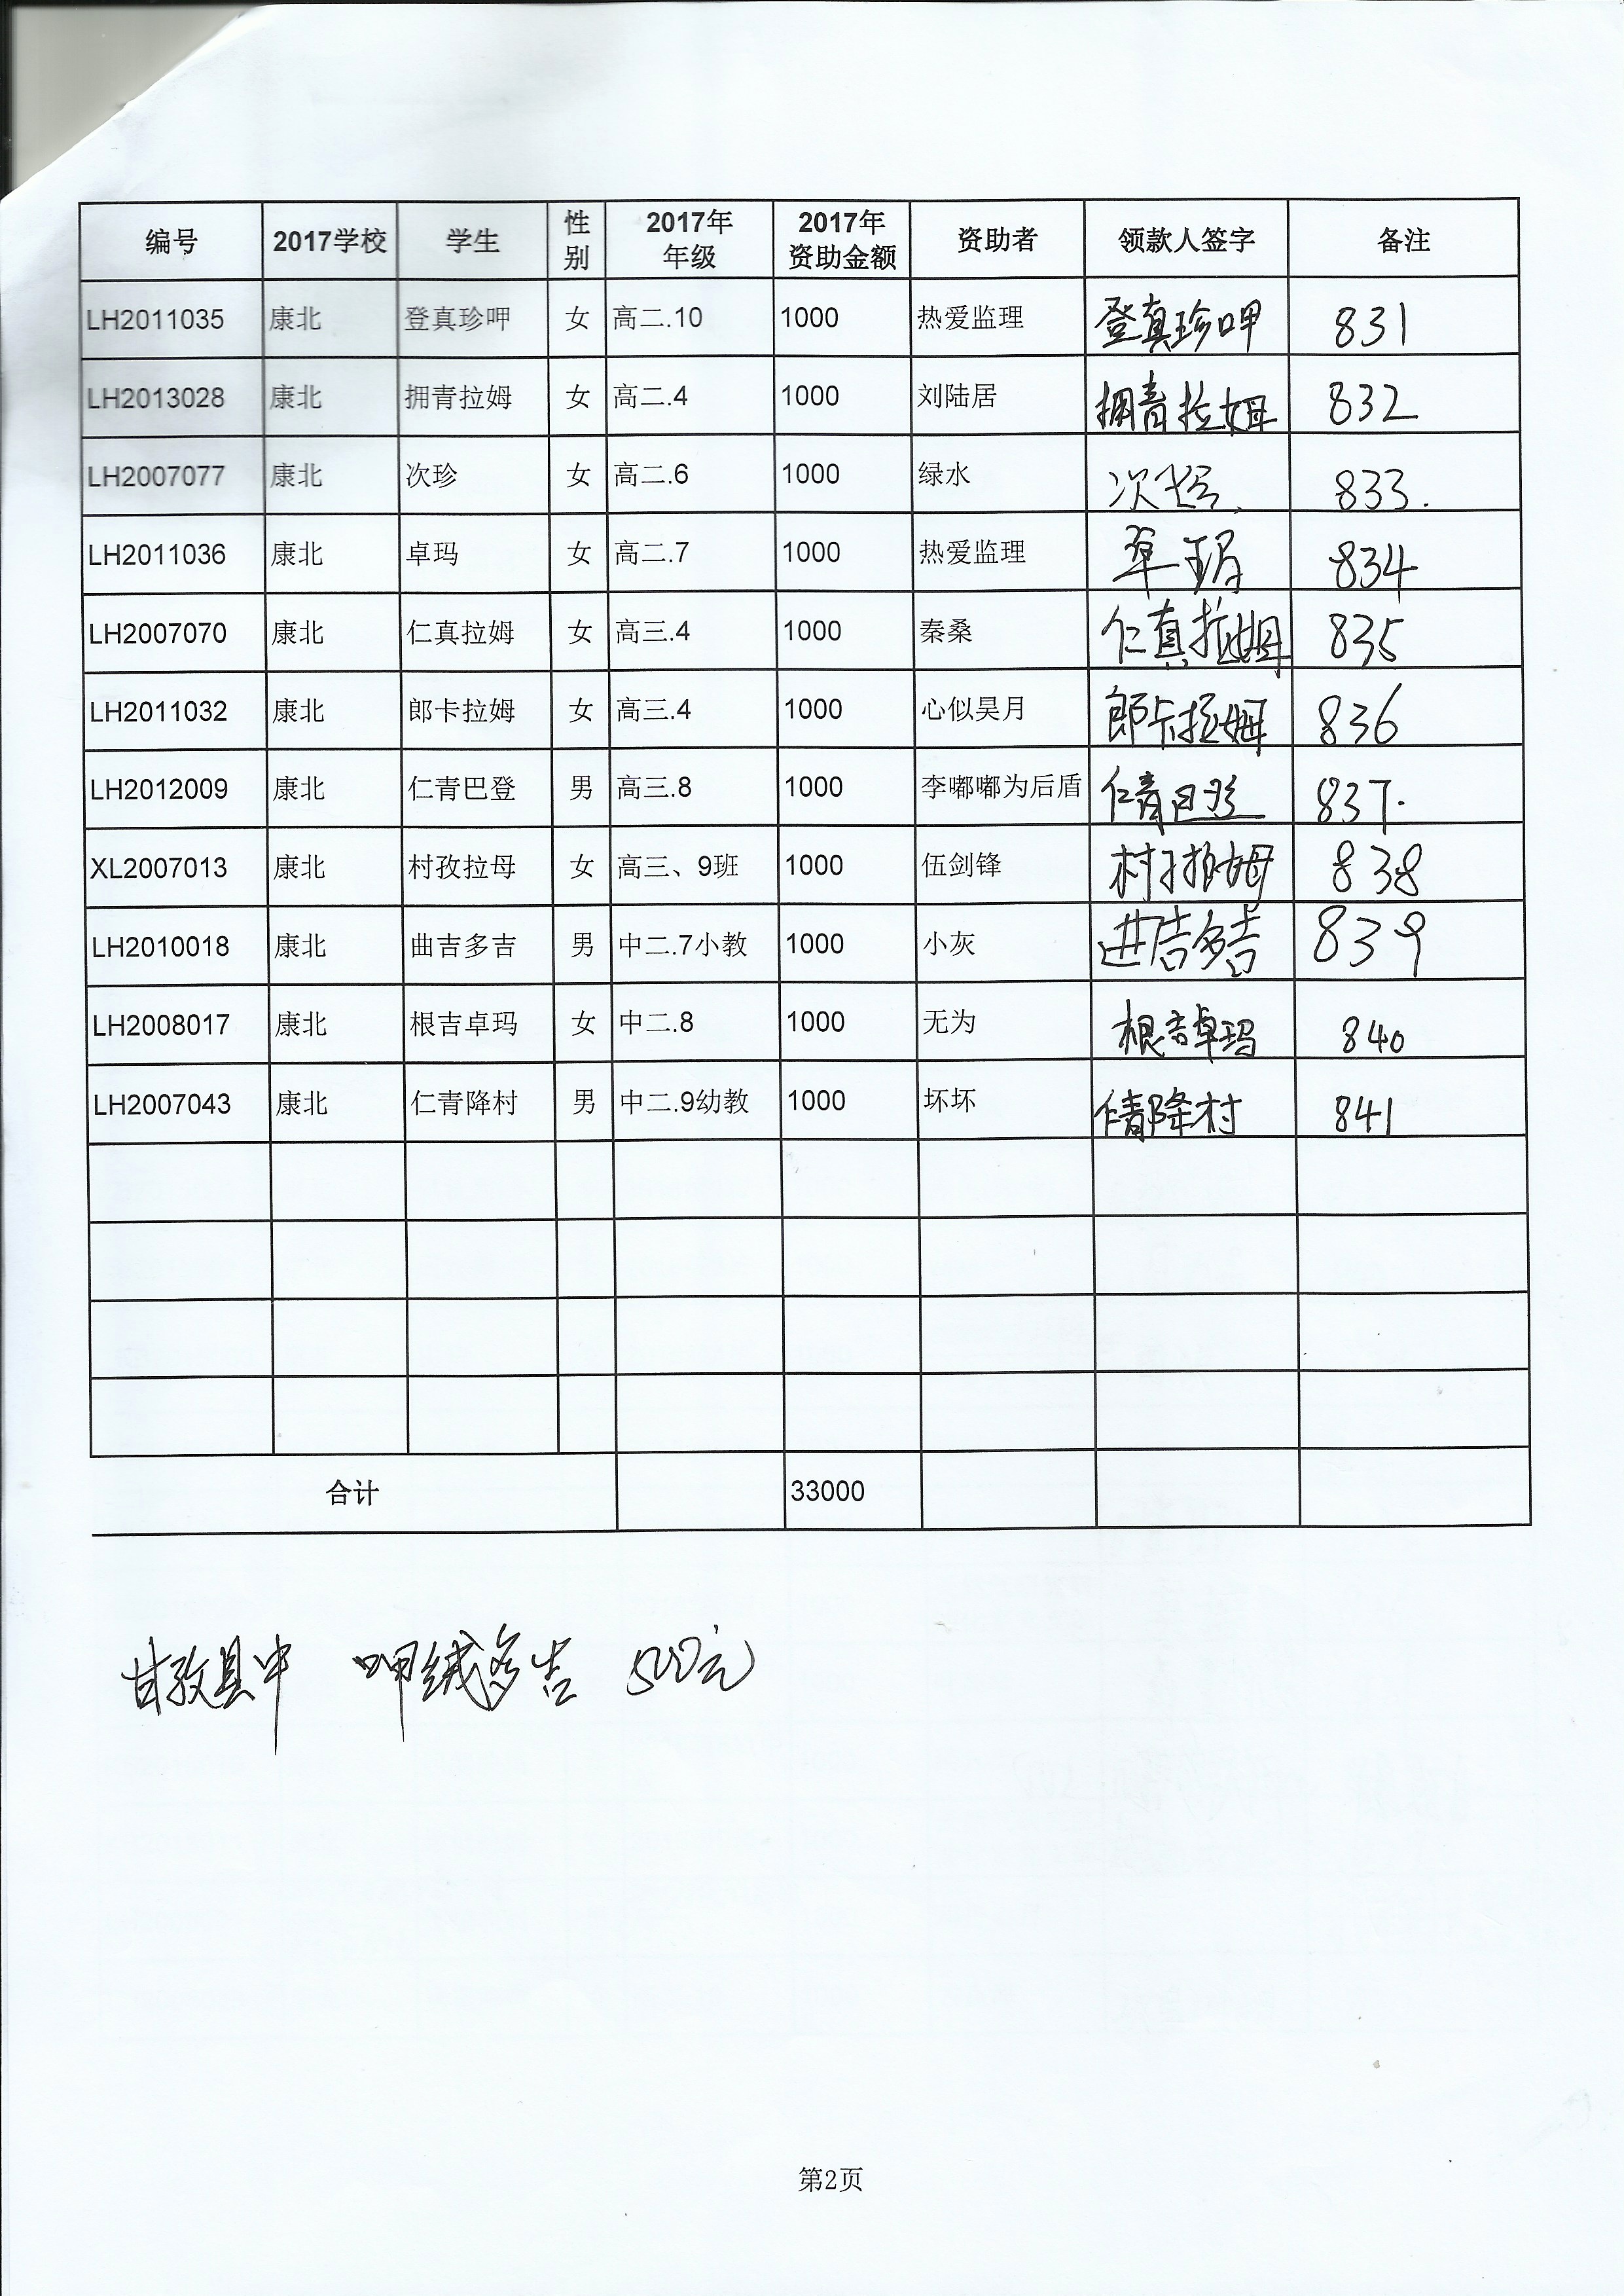 编号 2017学校 学生 性别 2017年年级 2017年资助金额 资助者 领款人签字 备注
LH2011035 康北 登真珍呷 女 高二.10 1000 热爱监理 登真珍呷 831
LH2013028 康北 拥青拉姆 女 高二.4 1000 刘陆居 拥青拉姆 832
LH2007077 康北 次珍 女 高二.6 1000 绿水 次珍. 833.
LH2011036 康北 卓玛 女 高二.7 1000 热爱监理 卓玛 834
LH2007070 康北 仁真拉姆 女 高三.4 1000 秦桑 仁真拉姆 835
LH2011032 康北 郎卡拉姆 女 高三.4 1000 心似昊月 郎卡拉姆 836
LH2012009 康北 仁青巴登 男 高三.8 1000 李嘟嘟为后盾 仁青巴 837.
XL2007013 康北 村孜拉母 女 高三、9班 1000 伍剑锋 村孜拉姆 838
LH2010018 康北 曲吉多吉 男 中二.7小教 1000 小灰 吉多吉 839
LH2008017 康北 根吉卓玛 女 中二.8 1000 无为 根吉卓玛 840
LH2007043 康北 仁青降村 男 中二.9幼教 1000 坏坏 仁青降村 841
合计 33000
甘孜县中 呷绒多吉 500元
第2页